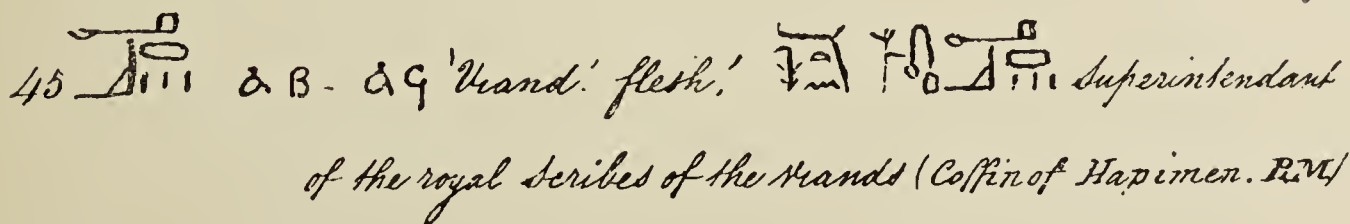 45 & B - & G 'Viand.' flesh,' Superintendant
of the royal Scribes of the viands (Coffin of Hapimen. B.M)